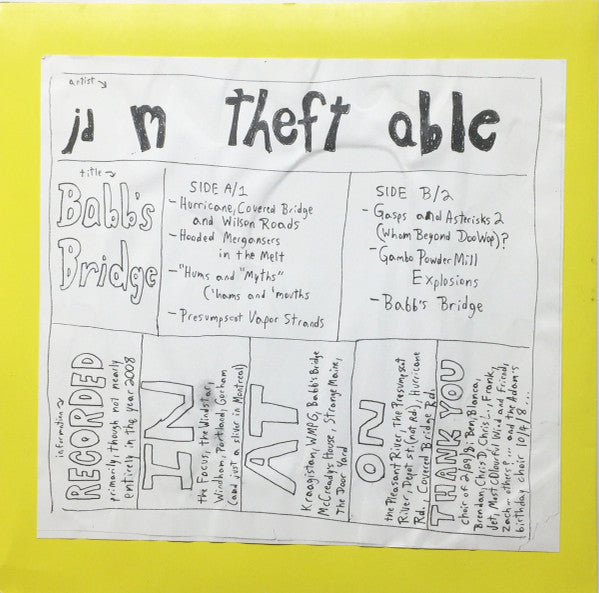 artist
id m theft able
title
Babb's
Bridge
SIDE A/1
- Hurricane, Covered Bridge
and Wilson Roads
- Hooded Mergansers
in the Melt
- "Hums and "Myths"
('hams and 'mouths
- Presumpscot Vapor Strands
SIDE B/2
- Gasps and Asterisks 2
(Whom Beyond DooWop)?
- Gambo Powder Mill
Explosions
- Babb's Bridge
information
RECORDED
primarily, though not nearly
entirely in the year 2008
IN
the Focus, the Windstar,
Windham, Portland, Gorham
(and just a sliver in Montreal)
AT
Kraagistan, WMPG, Babb's Bridge
McCready's House, Strange Maine,
The Door Yard
ON
the Pleasant River, The Presumpscot
River, Depot St. (not Rd.), Hurricane
Rd., Covered Bridge Rd.
THANK YOU
choir of 2/29/8: Ben, Bianca,
Brendan, Chris D, Chris L., Frank,
Jet, Most COlourful Wind and Friend,
Zach + others?... and the Adam's
birthday choir 10/4/8...